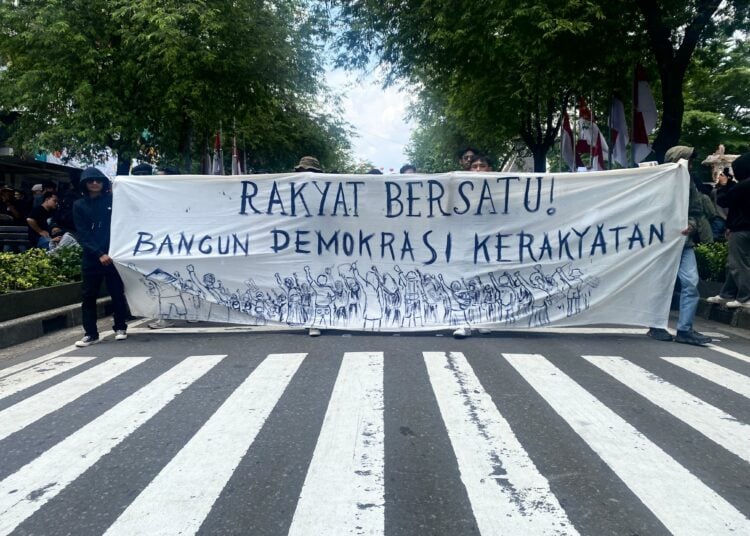 RAKYAT BERSATU!
BANGUN DEMOKRASI KERAKYATAN